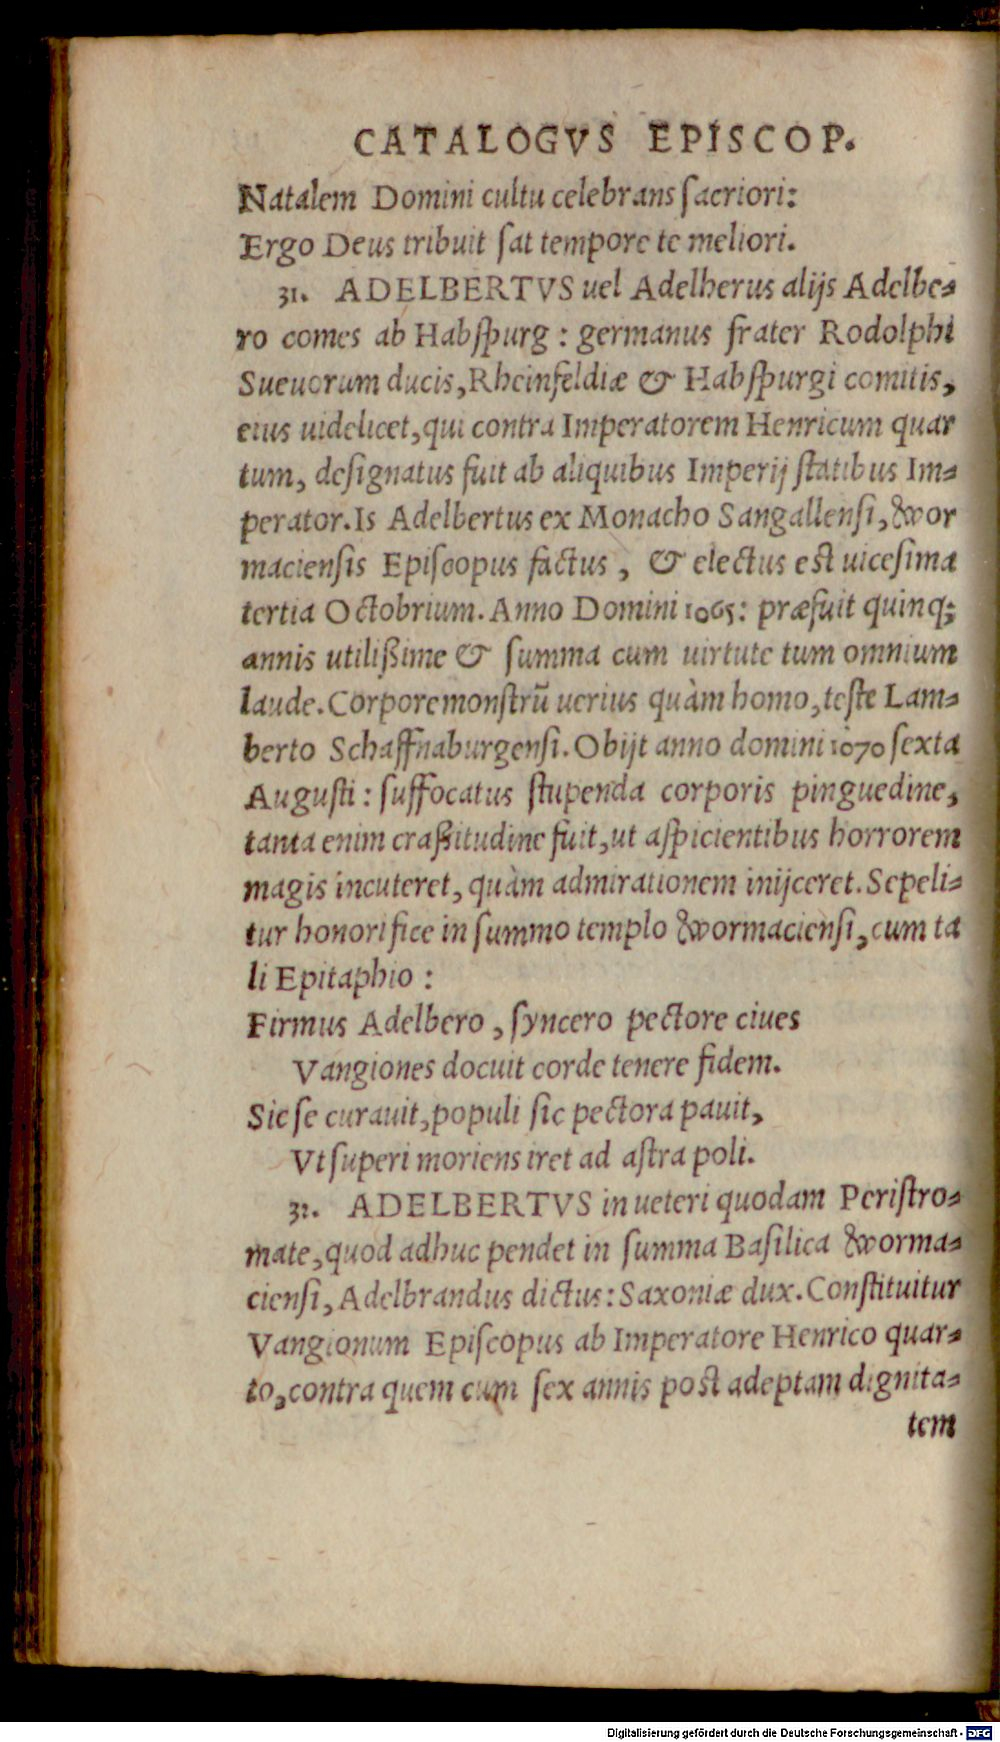 CATALOGVS EPISCOP.
Natalem Domini cultu celebrans sacriori:
Ergo Deus tribuit sat tempore te meliori.
31. ADELBERTVS uel Adelherus alijs Adelbe-
ro comes ab Habspurg: germanus frater Rodolphi
Sueuorum ducis, Rheinfeldiæ & Habspurgi comitis,
eius uidelicet, qui contra Imperatorem Henricum quar
tum, designatus fuit ab aliquibus Imperij statibus Im-
perator. Is Adelbertus ex Monacho Sangallensi, Wor
maciensis Episcopus factus, & electus est uicesima
tertia Octobrium. Anno Domini 1065: præfuit quinq;
annis utilißime & summa cum uirtute tum omnium
laude. Corpore monstrū uerius quàm homo, teste Lam-
berto Schaffnaburgensi. Obijt anno domini 1070 sexta
Augusti: suffocatus stupenda corporis pinguedine,
tanta enim craßitudine fuit, ut aspicientibus horrorem
magis incuteret, quàm admirationem inijceret. Sepeli-
tur honorifice in summo templo Wormaciensi, cum ta
li Epitaphio:
Firmus Adelbero, syncero pectore ciues
Vangiones docuit corde tenere fidem.
Sic se curauit, populi sic pectora pauit,
Vt superi moriens iret ad astra poli.
32. ADELBERTVS in ueteri quodam Peristro-
mate, quod adhuc pendet in summa Basilica Worma-
ciensi, Adelbrandus dictus: Saxoniæ dux. Constituitur
Vangionum Episcopus ab Imperatore Henrico quar-
to, contra quem cum sex annis post adeptam dignita-
tem
Digitalisierung gefördert durch die Deutsche Forschungsgemeinschaft - DFG